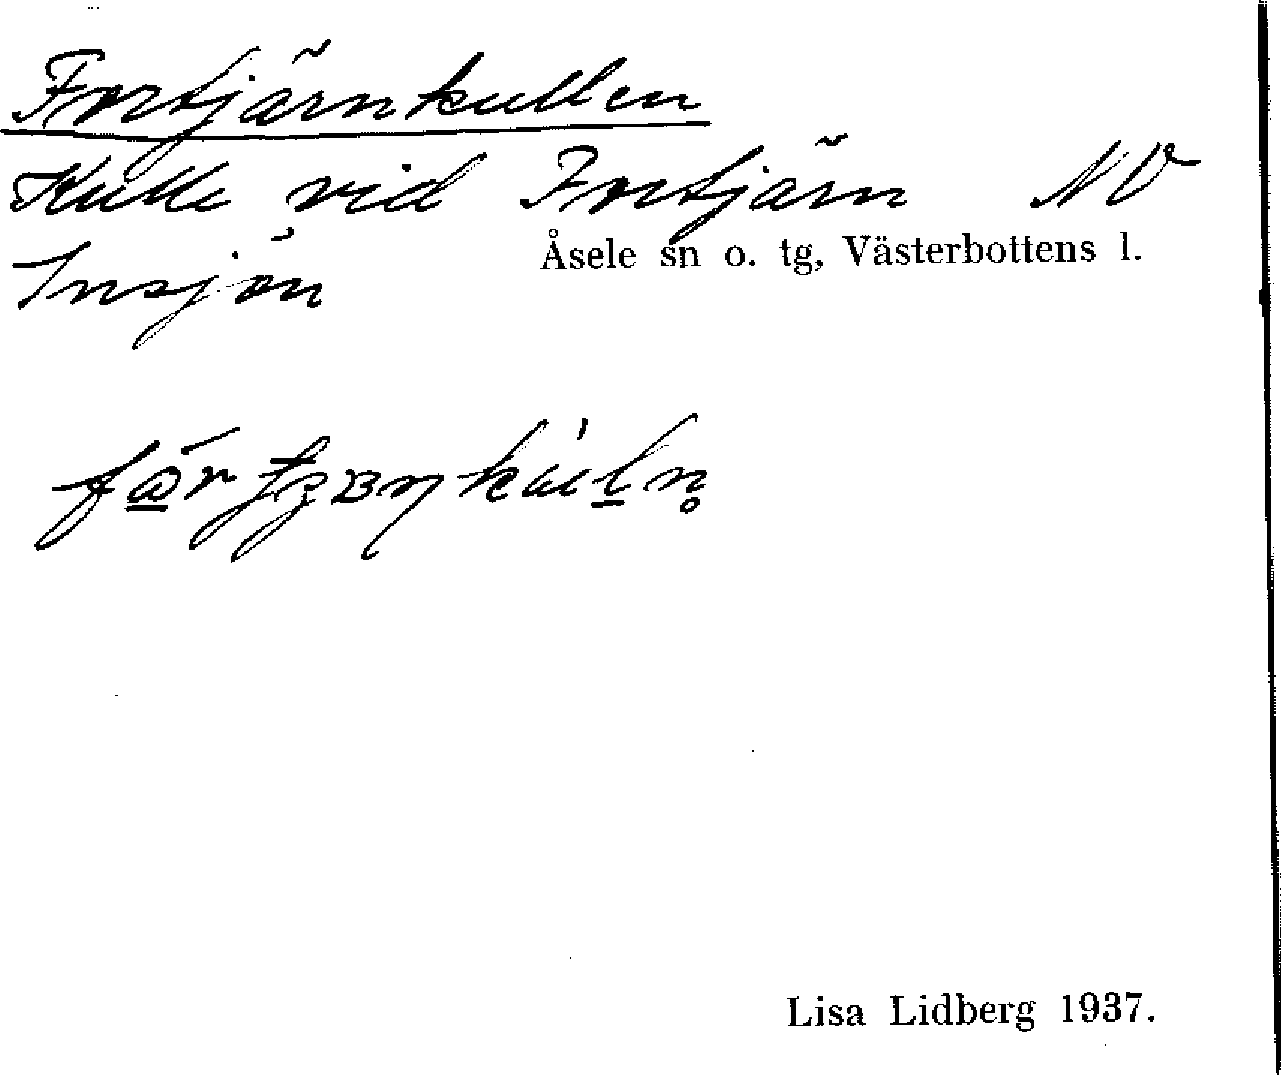 Fortjärnkullen
Kulle vid Fortjärn NV
Insjön
Åsele sn o. tg, Västerbottens l.
Lisa Lidberg 1937.